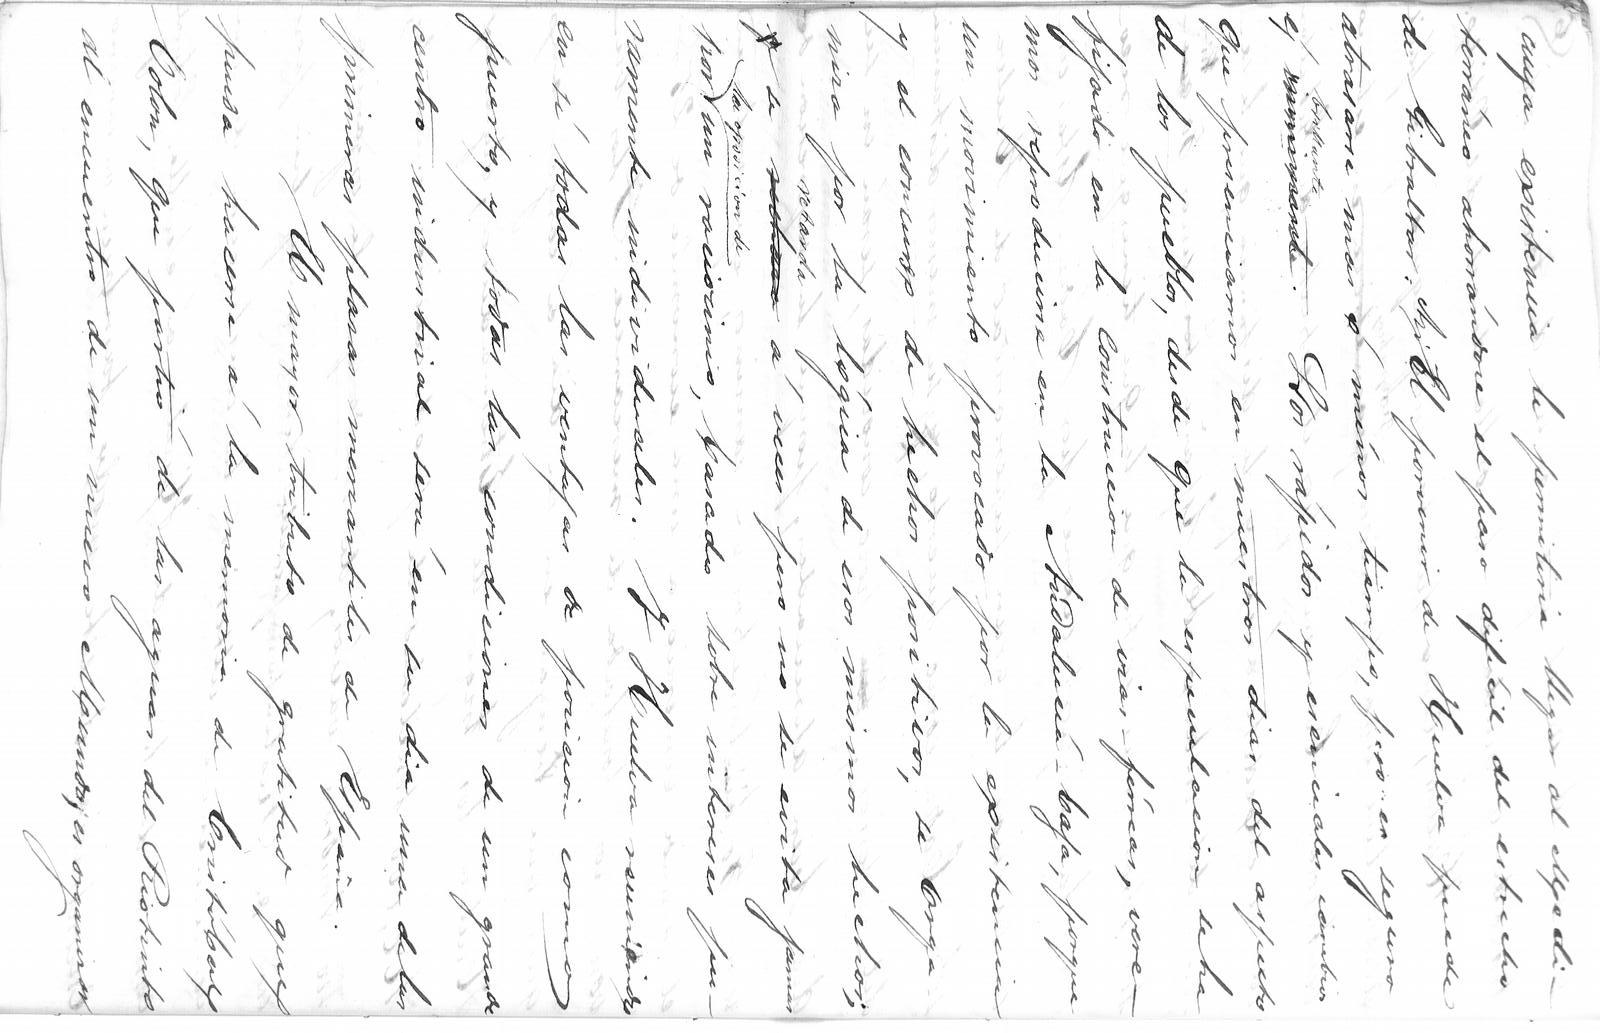 cuya existencia le permitiria llegar al Mediter-
terráneo ahorrándose el paso dificil del estrecho
de Gibraltar. El porvenir de Huelva puede
atrasarse mas ó ménos tiempo, pero es seguro
y brillante. Los rápidos y esenciales cambios
que presenciamos en nuestros dias del aspecto
de los pueblos, desde que la especulacion se ha
fijado en la construccion de vias-férreas, vere-
mos reproducirse en la Andalucia-baja, porque
un movimiento provocado por la existencia
y el concurso de hechos positivos, se enga-
por la lógica de esos mismos hechos;
y se retarda á veces pero no se evita jamas
por la oposicion de un raciocinio, basado sobre intereses pu-
ramente individuales. Y Huelva reuniendo
en si todas las ventajas de posicion como
puerto, y todas las condiciones de un grande
centro industrial será en su dia una de las
primeras plazas mercantiles de España.
El mayor tributo de gratitud que
pueda hacerse á la memoria de Cristobal
Colon, que partió de las aguas del Riotinto
al encuentro de un nuevo Mundo, es organizar